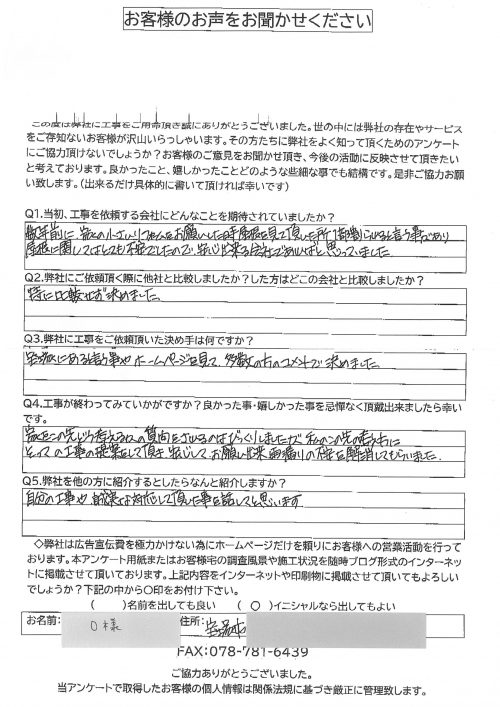 お客様のお声をお聞かせください
この度は弊社に工事をご用命頂き誠にありがとうございました。世の中には弊社の存在やサービス
をご存知ないお客様が沢山いらっしゃいます。その方たちに弊社をよく知って頂くためのアンケート
にご協力頂けないでしょうか？お客様のご意見をお聞かせ頂き、今後の活動に反映させて頂きたい
と考えております。良かったこと、嬉しかったことどのような些細な事でも結構です。是非ご協力お願
い致します。（出来るだけ具体的に書いて頂ければ幸いです）
Q1.当初、工事を依頼する会社にどんなことを期待されていましたか？
数年前に、家の小さいリフォームをお願いした時屋根を見て頂いた所
屋根に関してはとても不安でしたので、安心出来る会社であればと思っていました
Q2.弊社にご依頼頂く際に他社と比較しましたか？した方はどこの会社と比較しましたか？
特に比較せず決めました
Q3.弊社に工事をご依頼頂いた決め手は何ですか？
にあると言う事やホームページを見て、多数の方のコメントで決めました
Q4.工事が終わってみていかがですか？良かった事・嬉しかった事を忌憚なく頂戴出来ましたら幸い
です。
の質問をされるのはびっくりしましたが 私のこの先の考え方に
とっての工事の提案をして頂き 安心してお願い出来 雨漏りの不安を解消してもらいました
Q5.弊社を他の方に紹介するとしたらなんと紹介しますか？
自分の工事や、誠実な対応して頂いた事を話してと思います
◇弊社は広告宣伝費を極力かけない為にホームページだけを頼りにお客様への営業活動を行って
おります。本アンケート用紙またはお客様宅の調査風景や施工状況を随時ブログ形式のインターネッ
トに掲載させて頂いております。上記内容をインターネットや印刷物に掲載させて頂いてもよろしい
でしょうか？下記の中から○印をお付け下さい。
（ ）名前を出しても良い （ ○ ）イニシャルなら出してもよい
お名前： O様 住所：
FAX:078-781-6439
ご協力ありがとうございました。
当アンケートで取得したお客様の個人情報は関係法規に基づき厳正に管理致します。